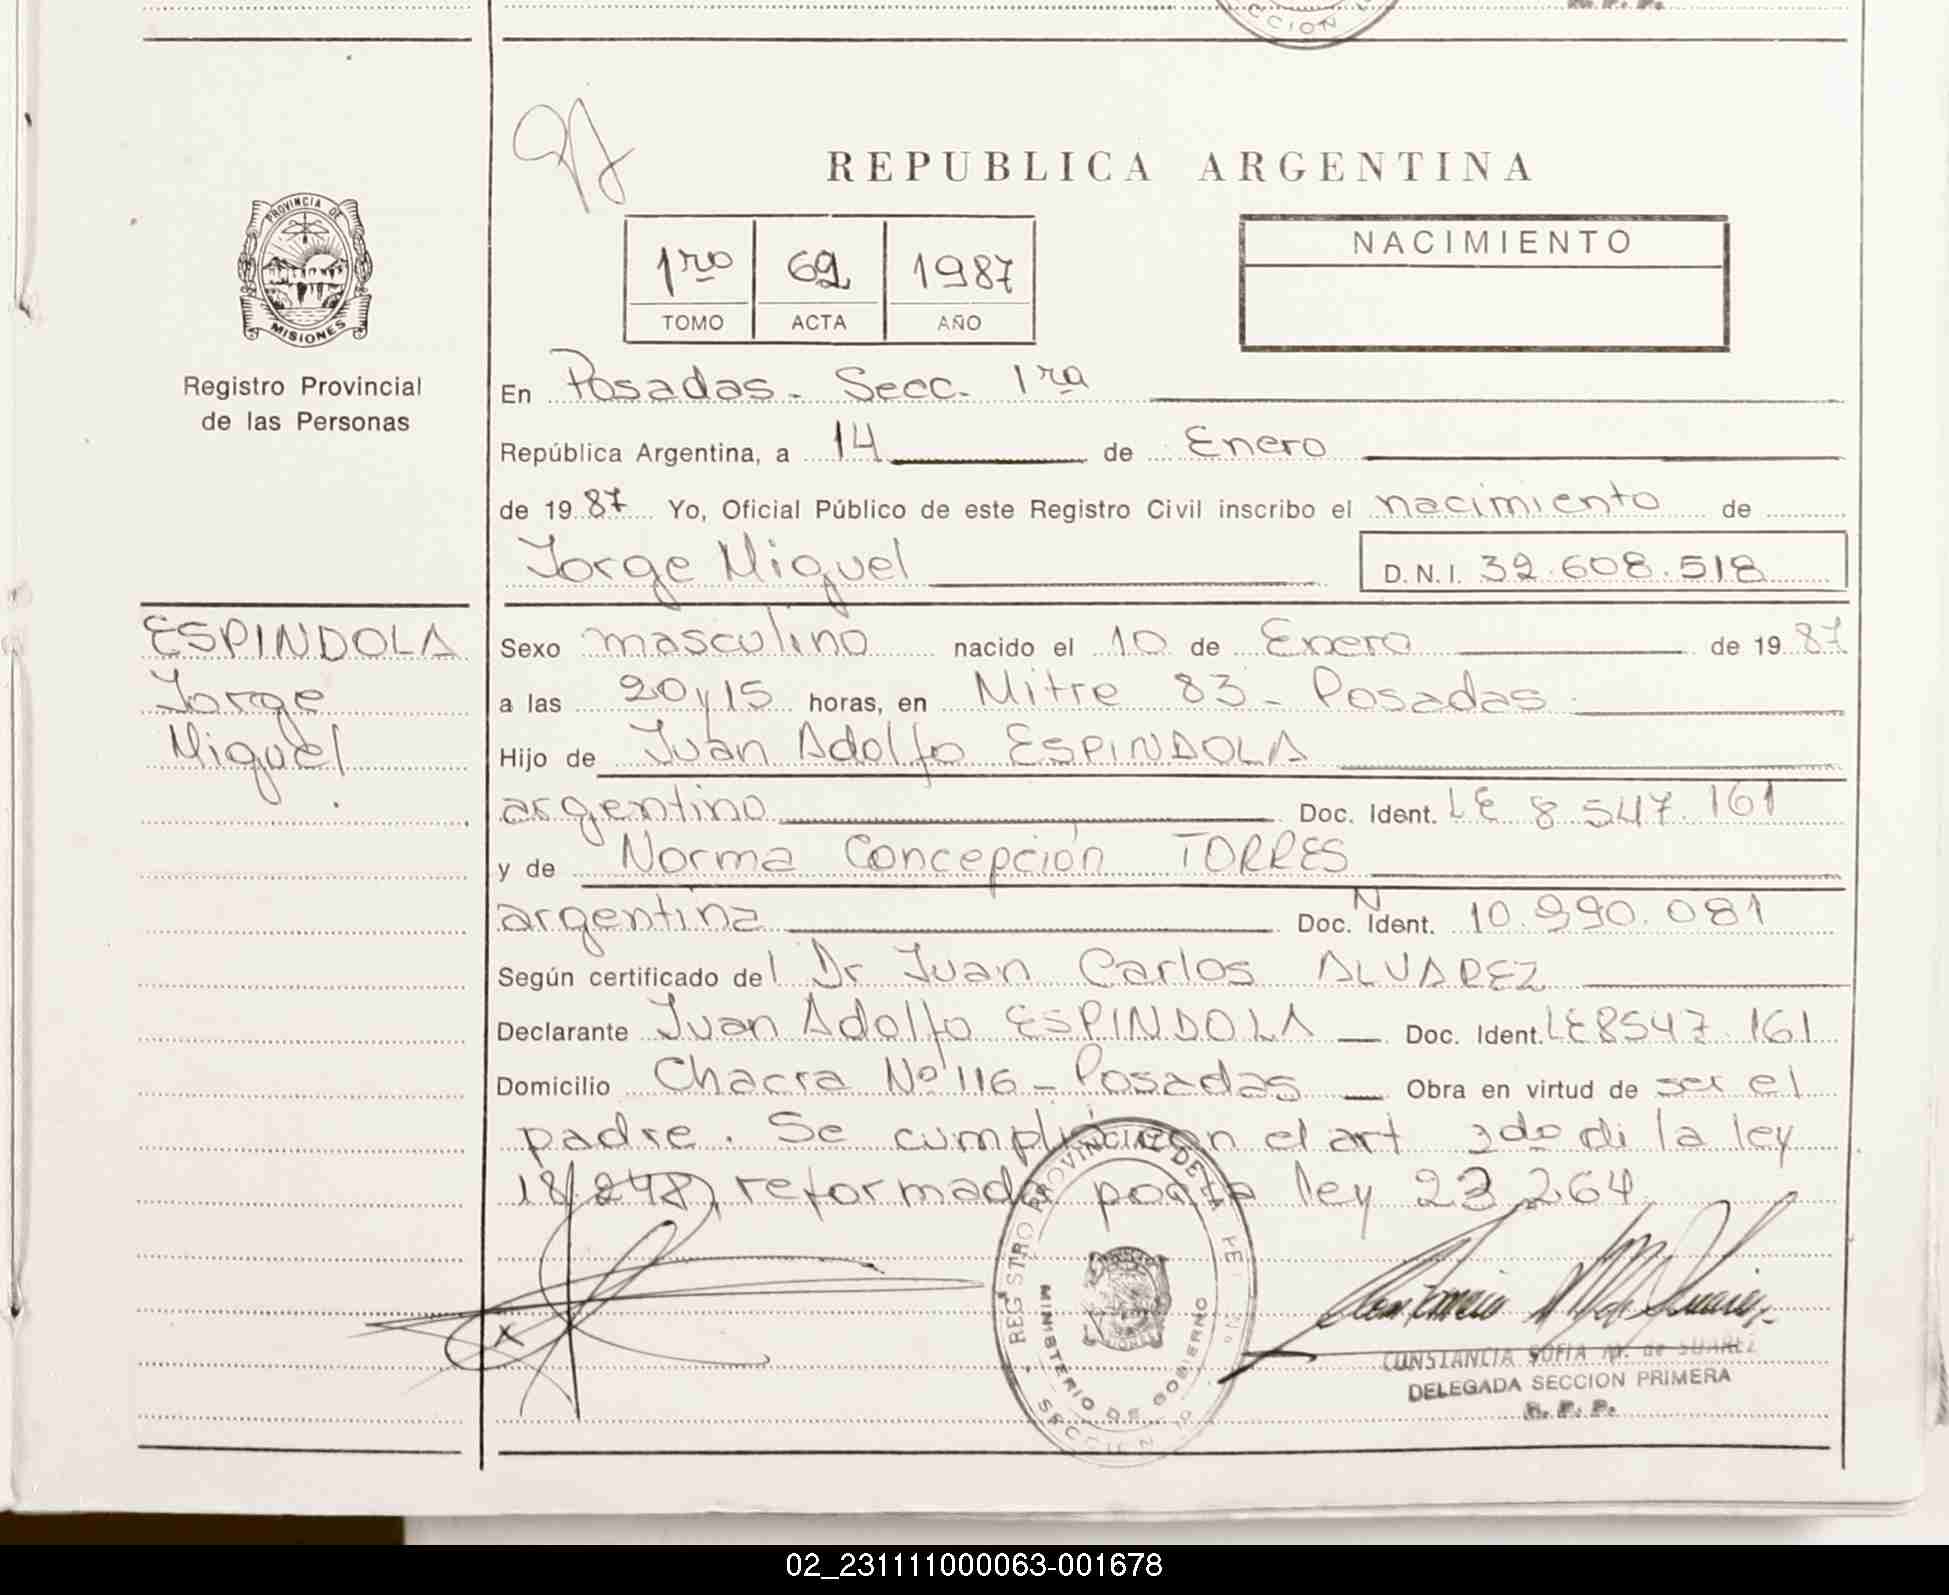 CCION
R. P. P.
REPUBLICA ARGENTINA
PROVINCIA DE
MISIONES
Registro Provincial
de las Personas
1ro 69 1987
TOMO ACTA AÑO
NACIMIENTO
En Posadas - Secc. 1ra
República Argentina, a 14 de Enero
de 1987 Yo, Oficial Público de este Registro Civil inscribo el nacimiento de
Jorge Miguel D.N.I. 32.608.518
ESPINDOLA
Jorge
Miguel
Sexo masculino nacido el 10 de Enero de 1987
a las 20 y 15 horas, en Mitre 83 - Posadas
Hijo de Juan Adolfo ESPINDOLA
argentino Doc. Ident. LE 8 547.161
y de Norma Concepción TORRES
argentina Doc. N Ident. 10.990.081
Según certificado del Dr Juan Carlos ALVAREZ
Declarante Juan Adolfo ESPINDOLA Doc. Ident. LE 8547.161
Domicilio Chacra Nº 116 - Posadas Obra en virtud de ser el
padre. Se cumplió con el art 2do di la ley
18.248, reformada por la ley 23.264
x
REGISTRO PROVINCIAL DE LA
MINISTERIO DE GOBIERNO
SECCION
CONSTANCIA SOFIA M. de SUAREZ
DELEGADA SECCION PRIMERA
R. P. P.
02_231111000063-001678